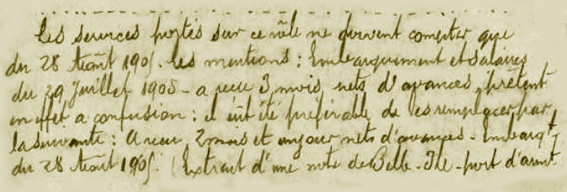 Les services portés sur ce rôle ne doivent compter que
du 28 Août 1905. Les mentions : Embarquement et salaires
du 29 Juillet 1905 - a reçu 3 mois nets d'avances, prêtent
en effet à confusion : il eût été préférable de les remplacer par
la suivante : A reçu 2 mois et un jour nets d'avances - Embarqt
du 28 Août 1905. (Extrait d'une note de Belle-Ile - port d'armt